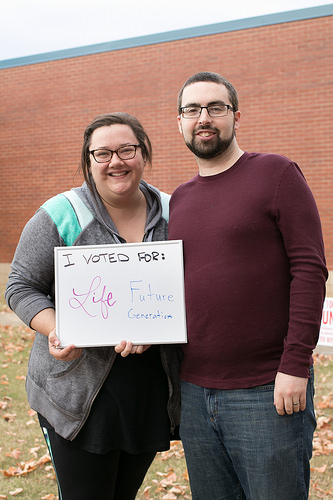 I VOTED FOR:
Life Future
Generation
UN